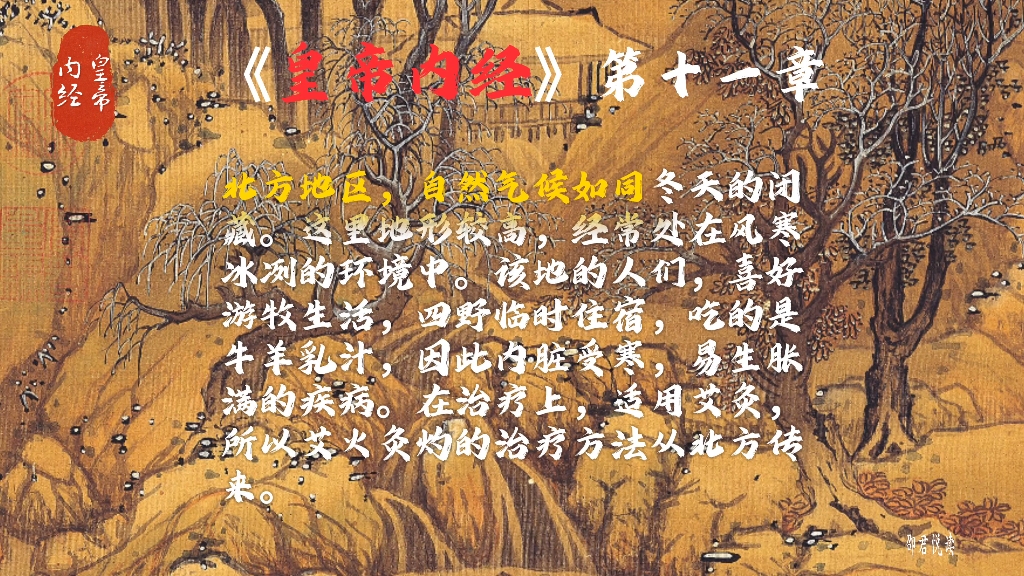 皇帝
内经
《皇帝内经》第十一章
北方地区，自然气候如同冬天的闭
藏。这里地形较高，经常处在风寒
冰冽的环境中。该地的人们，喜好
游牧生活，四野临时住宿，吃的是
牛羊乳汁，因此内脏受寒，易生胀
满的疾病。在治疗上，适用艾灸，
所以艾火灸灼的治疗方法从北方传
来。